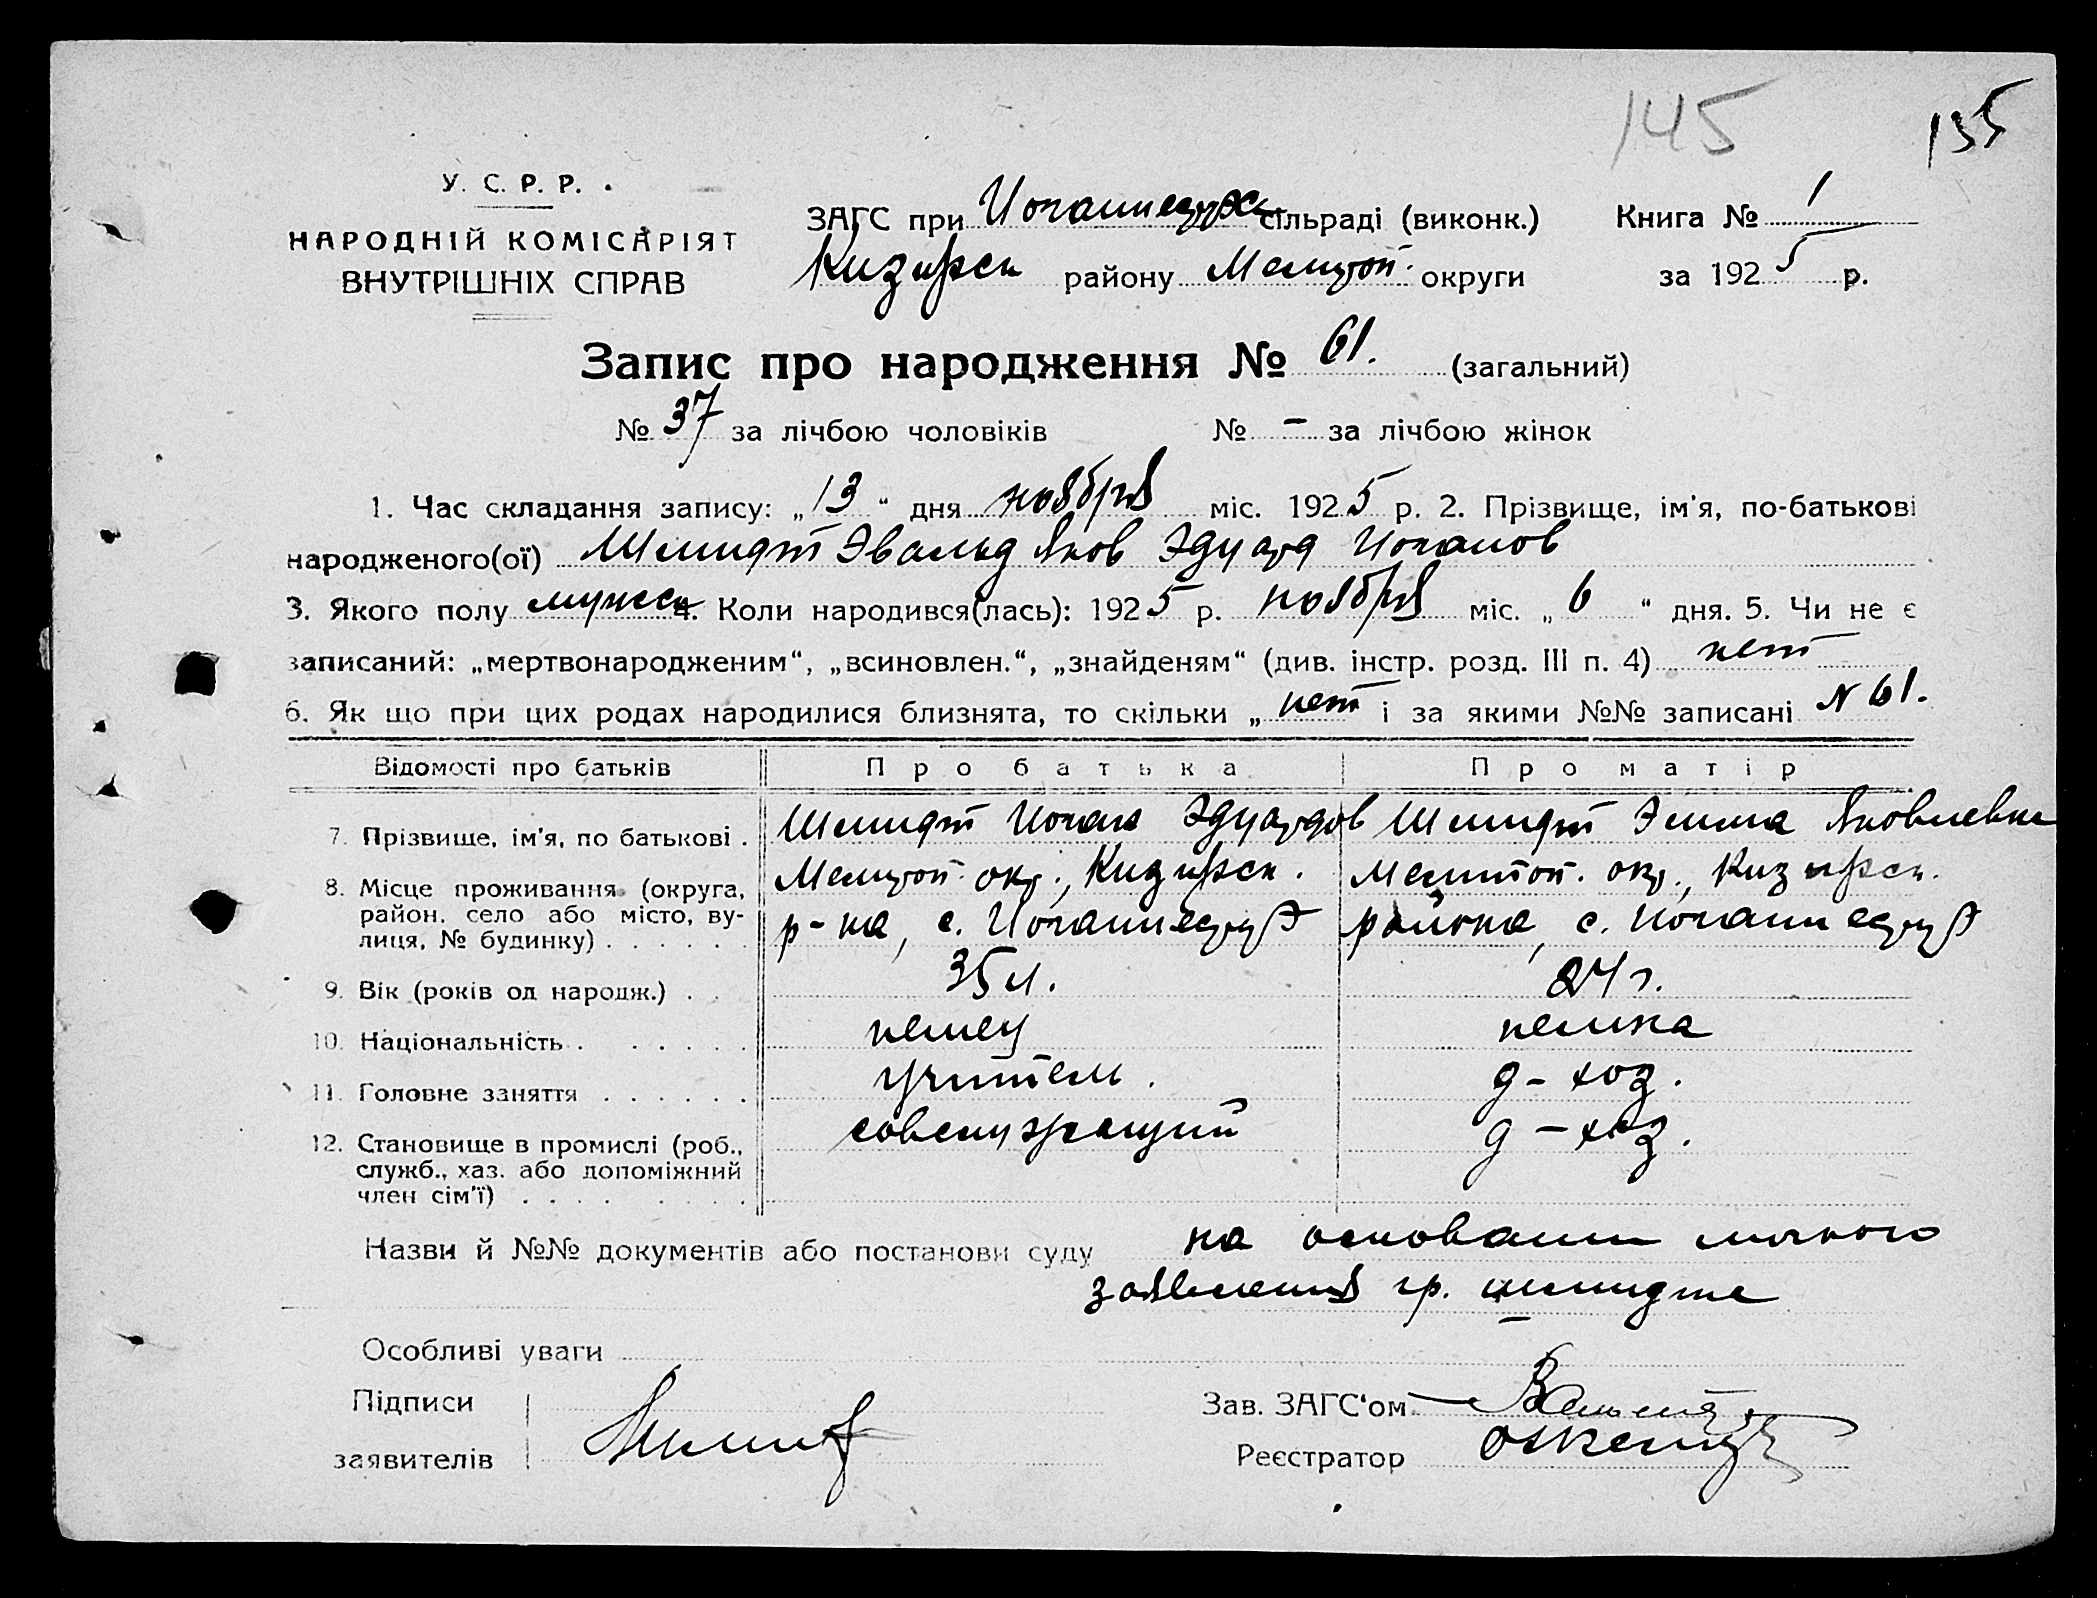 145
135
У. С. Р. Р.
НАРОДНІЙ КОМІСАРІЯТ
ВНУТРІШНІХ СПРАВ
ЗАГС при Иоганнесруск сільраді (виконк.) Книга № 1
Кизиярск району Мелитоп. округи за 1925 р.
Запис про народження № 61. (загальний)
№ 37 за лічбою чоловіків № – за лічбою жінок
1. Час складання запису: „13“ дня ноября міс. 1925 р. 2. Прізвище, ім'я, по-батькові
народженого(ої) Шмидт Эвальд Яков Эдуард Иоганов
3. Якого полу мужск 4. Коли народився(лась): 1925 р. ноября міс. „6“ дня. 5. Чи не є
записаний: „мертвонародженим“, „всиновлен.“, „знайденям“ (див. інстр. розд. III п. 4) нет
6. Як що при цих родах народилися близнята, то скільки „ нет і за якими №№ записані N 61.
Відомості про батьків Про батька Про матір
7. Прізвище, ім'я, по батькові . Шмидт Иоган Эдуардов Шмидт Эмма Яковлевна
8. Місце проживання (округа, район, село або місто, вулиця, № будинку) Мелитоп. окр., Кизиярск. р-на, с. Иоганнесру Мелитоп. окр., Кизиярск. района, с. Иоганнесру
9. Вік (років од народж.) 35 л. 24 г.
10. Національність немец немка
11. Головне заняття учитель. д-хоз.
12. Становище в промислі (роб., служб., хаз. або допоміжний член сім'ї) совслужащий д-хоз.
Назви й №№ документів або постанови суду на основании личного
заявления гр. Шмидта
Особливі уваги –
Підписи
заявителів
Зав. ЗАГС'ом
Реєстратор